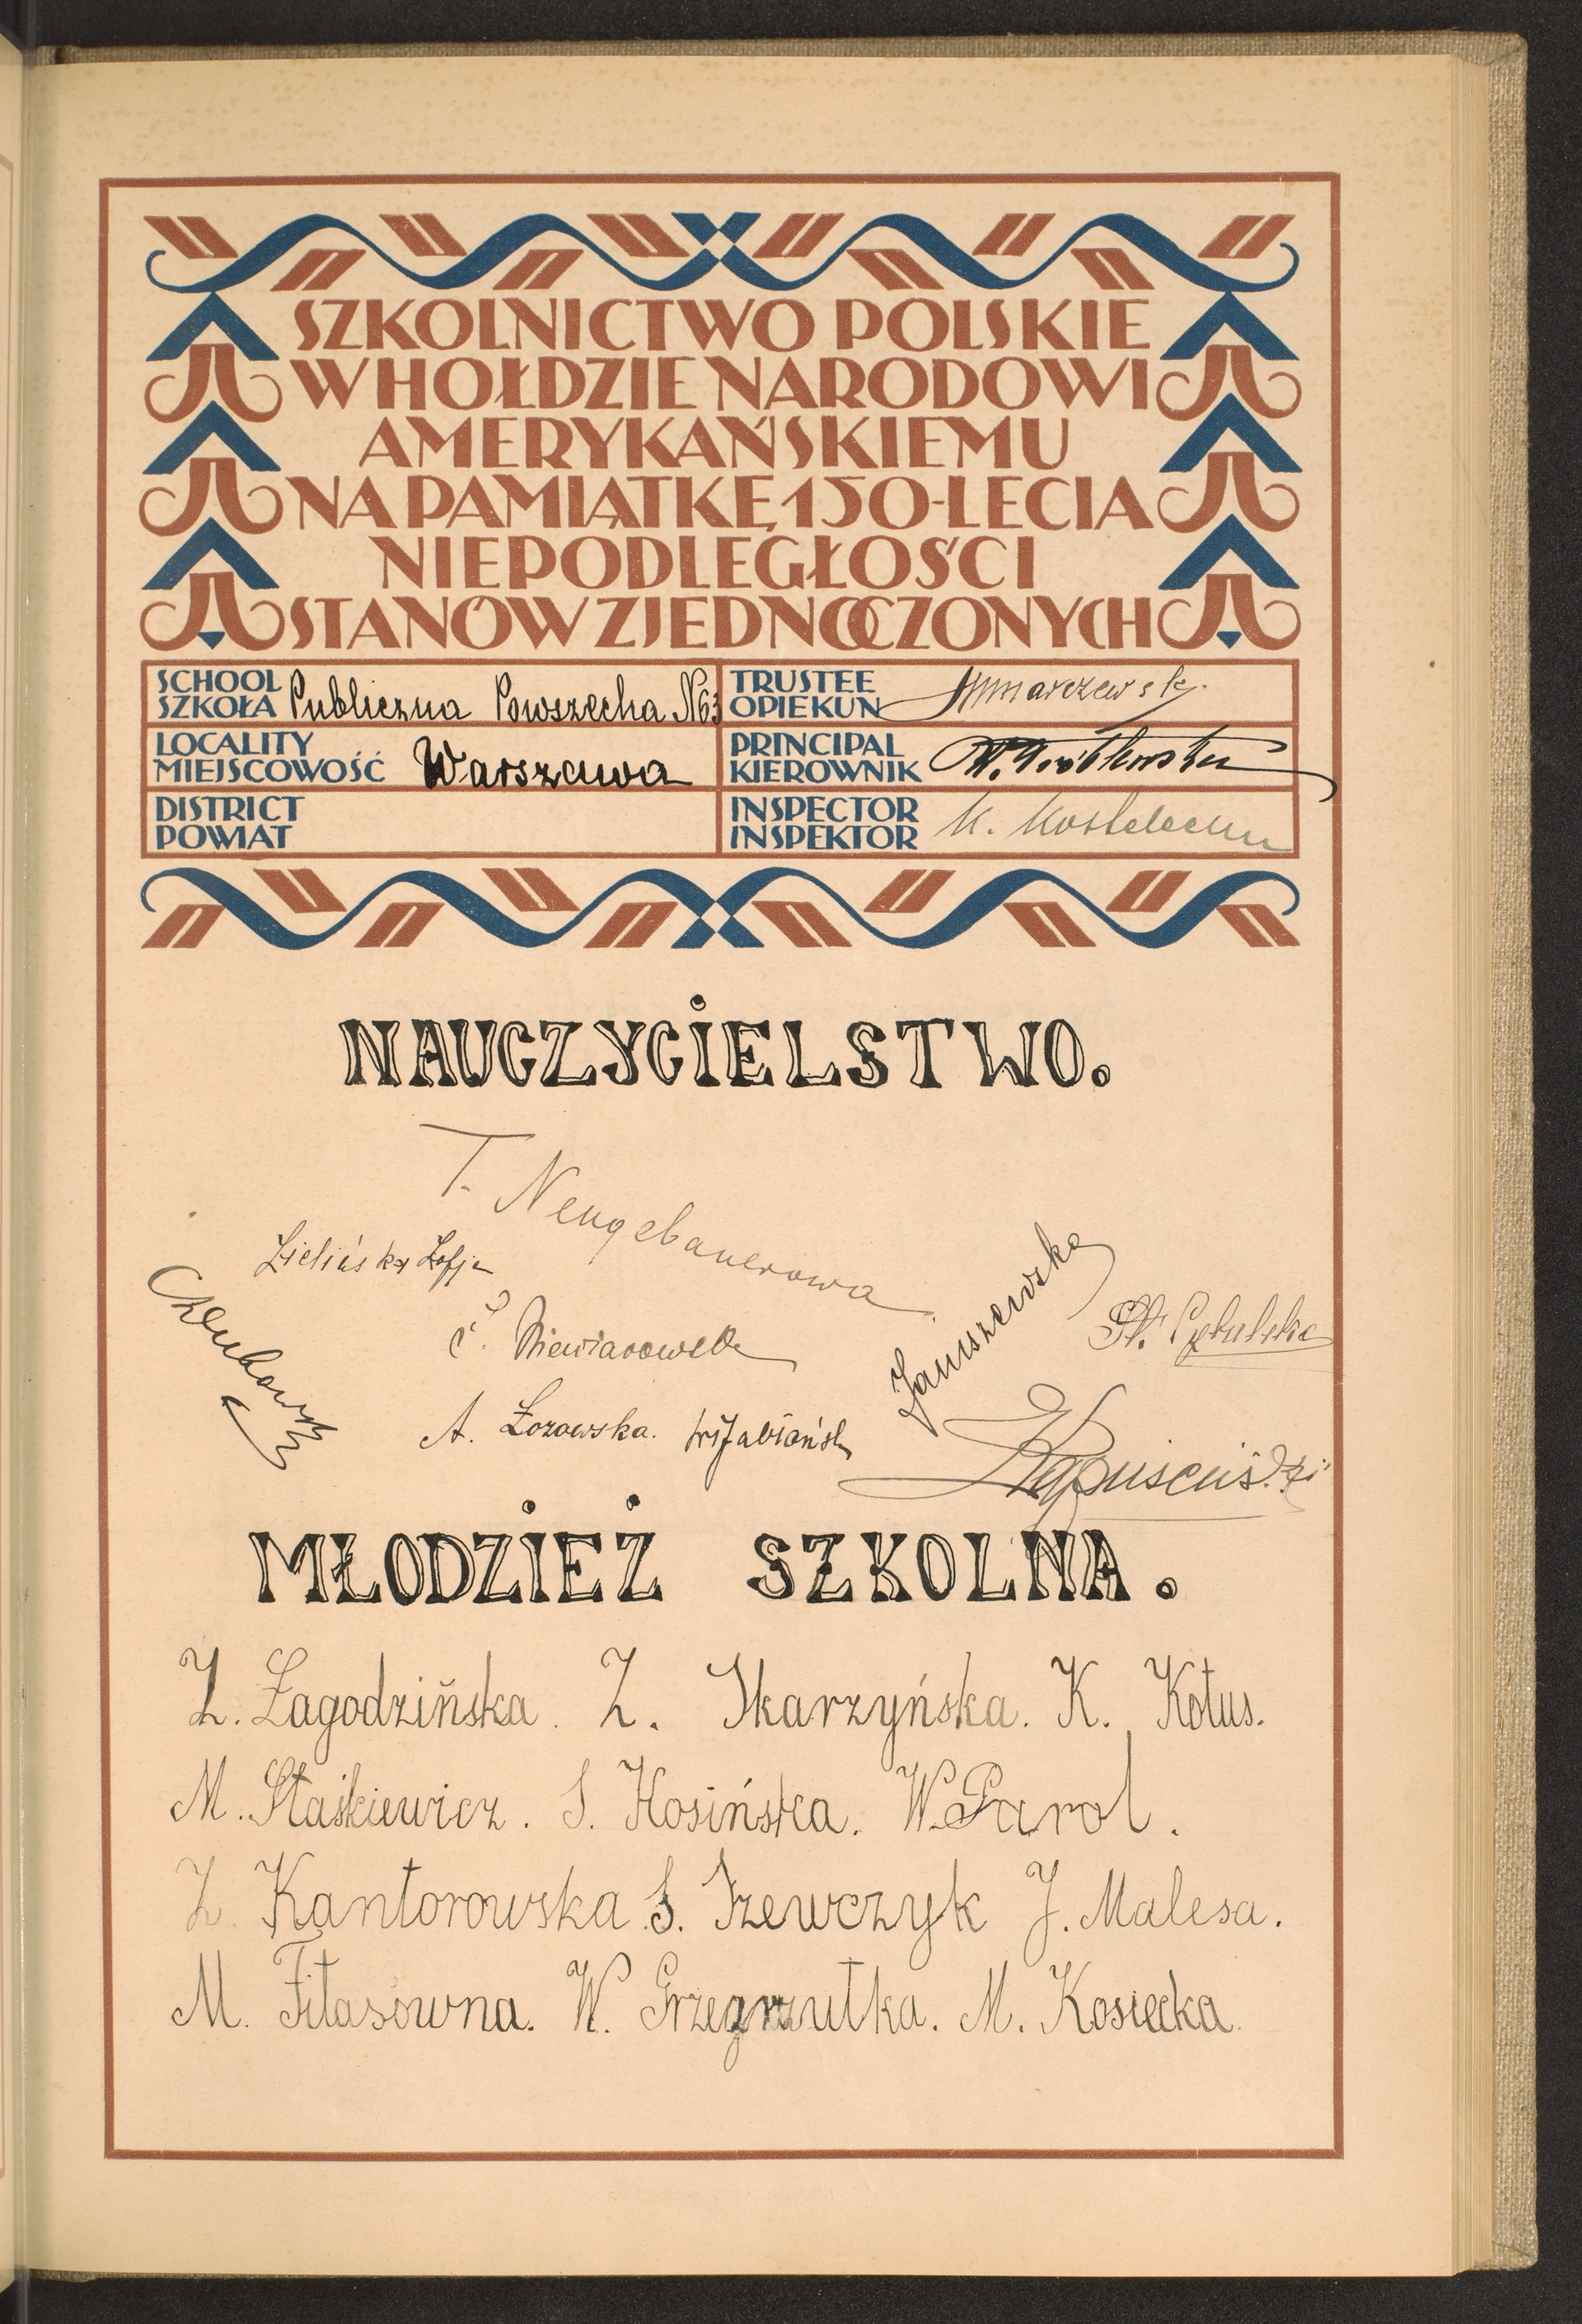 SZKOLNICTWO POLSKIE
W HOŁDZIE NARODOWI
AMERYKAŃSKIEMU
NA PAMIĄTKĘ 150-LECIA
NIEPODLEGŁOŚCI
STANÓW ZJEDNOCZONYCH
SCHOOL
SZKOŁA Publiczna Powszecha N63
TRUSTEE
OPIEKUN
LOCALITY
MIEJSCOWOŚĆ Warszawa
PRINCIPAL
KIEROWNIK
DISTRICT
POWIAT
INSPECTOR
INSPEKTOR K.
NAUCZYCIELSTWO.
T. Neugebauerowa
Zielińska Zofja
Niewiarowska
Januszewska
St. Cybulska
A. Łozowska.
Kapuściński
MŁODZIEŻ SZKOLNA.
Z. Łagodzińska. Z. Skarzyńska. K. Kotus.
M. Staśkiewicz. S. Kosińska. W. Parol.
Z. Kantorowska S. Szewczyk J. Malesa.
M. Fitasówna. W. Grzegrzutka. M. Kosiecka.